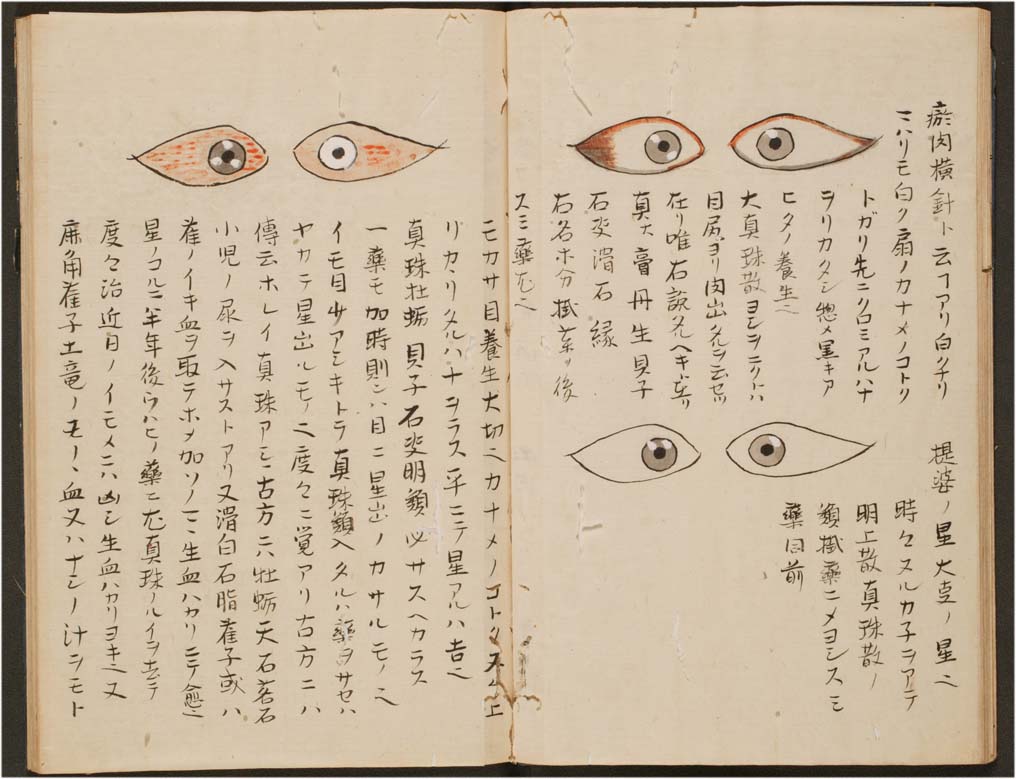 瘀肉横針ト云フアリ白クチリ
ニハリモ白ク扇ノカナメノコトク
トガリ先ニクロミアルハナ
ヲリカタシ惣〆星キア
ヒタノ養生ニ
大真珠散ヨシ
目尻ヨリ肉出
在リ唯右説
真大膏丹生貝子
石决滑石縁
右各ホ分掛薬ヲ後
スミ薬尤ニ
提婆ノ星大事ノ星ニ
時々ヌルカ子ヲアテ
明上散真珠散ノ
類掛薬ニメヨシスミ
薬同前
モカサ目養生大切ニカナメノコトク又ハ上
リカヽリタルハナヲラス平ニテ星アルハ吉ニ
真珠牡蛎貝子石决明類必サスヘカラス
一薬モ加時則ハ目ニ星出ノカサルモノニ
イモ目少アシキトテ真珠類入タルハ薬ヲサセハ
ヤカテ星出ルモノニ度々ニ覚アリ古方ニハ
傳云ホレイ真珠アシニ古方ニハ牡蛎天石茗石
小児ノ尿ヲ入サストアリ又滑白石脂雀子或ハ
雀ノイキ血ヲ取テホメ加ソノニ生血ハカリニテ愈ニ
星ノコルニ半年後ウハヒノ薬ニ尤真珠ノルイヲ去テ
度々治近日ノイモメニハ凶シ生血ハカリヨキニ又
麻角雀子土竜ノモノヽ血又ハナシノ汁ヲモト